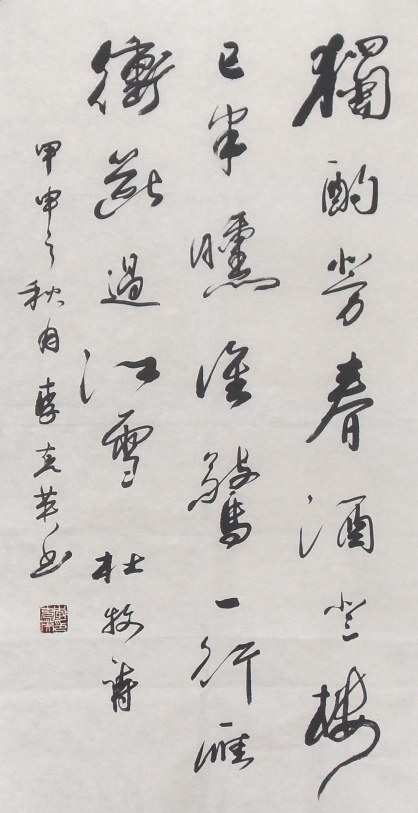 獨酌芳春酒登樓
已半醺誰驚一行雁
衝斷過江雲 杜牧詩
甲申之秋月李克英书